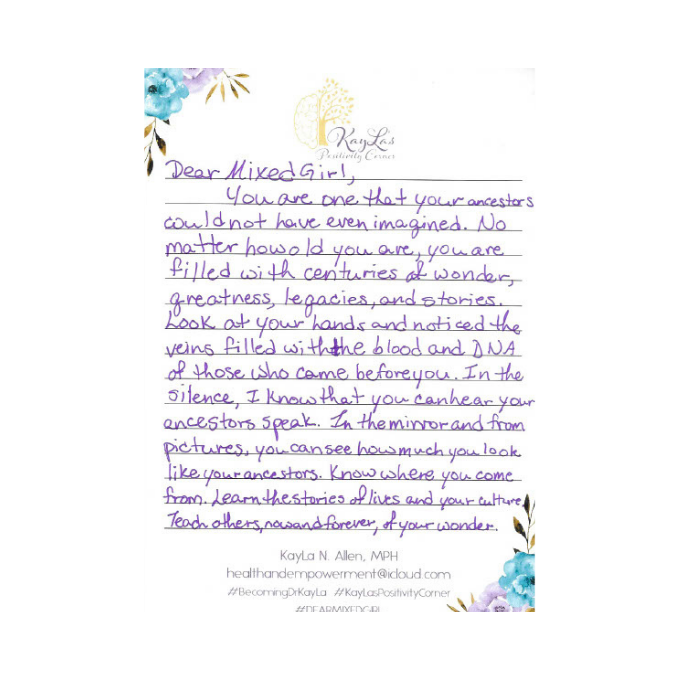 KayLa's
Positivity Corner
Dear Mixed Girl,
You are one that your ancestors
could not have even imagined. No
matter how old you are, you are
filled with centuries of wonder,
greatness, legacies, and stories.
Look at your hands and noticed the
veins filled with the blood and DNA
of those who came before you. In the
silence, I know that you can hear your
ancestors speak. In the mirror and from
pictures, you can see how much you look
like your ancestors. Know where you come
from. Learn the stories of lives and your culture.
Teach others, now and forever, of your wonder.
KayLa N. Allen, MPH
healthandempowerment@icloud.com
#BecomingDrKayla #KayLasPositivityCorner
#DEARMIXEDGIRL